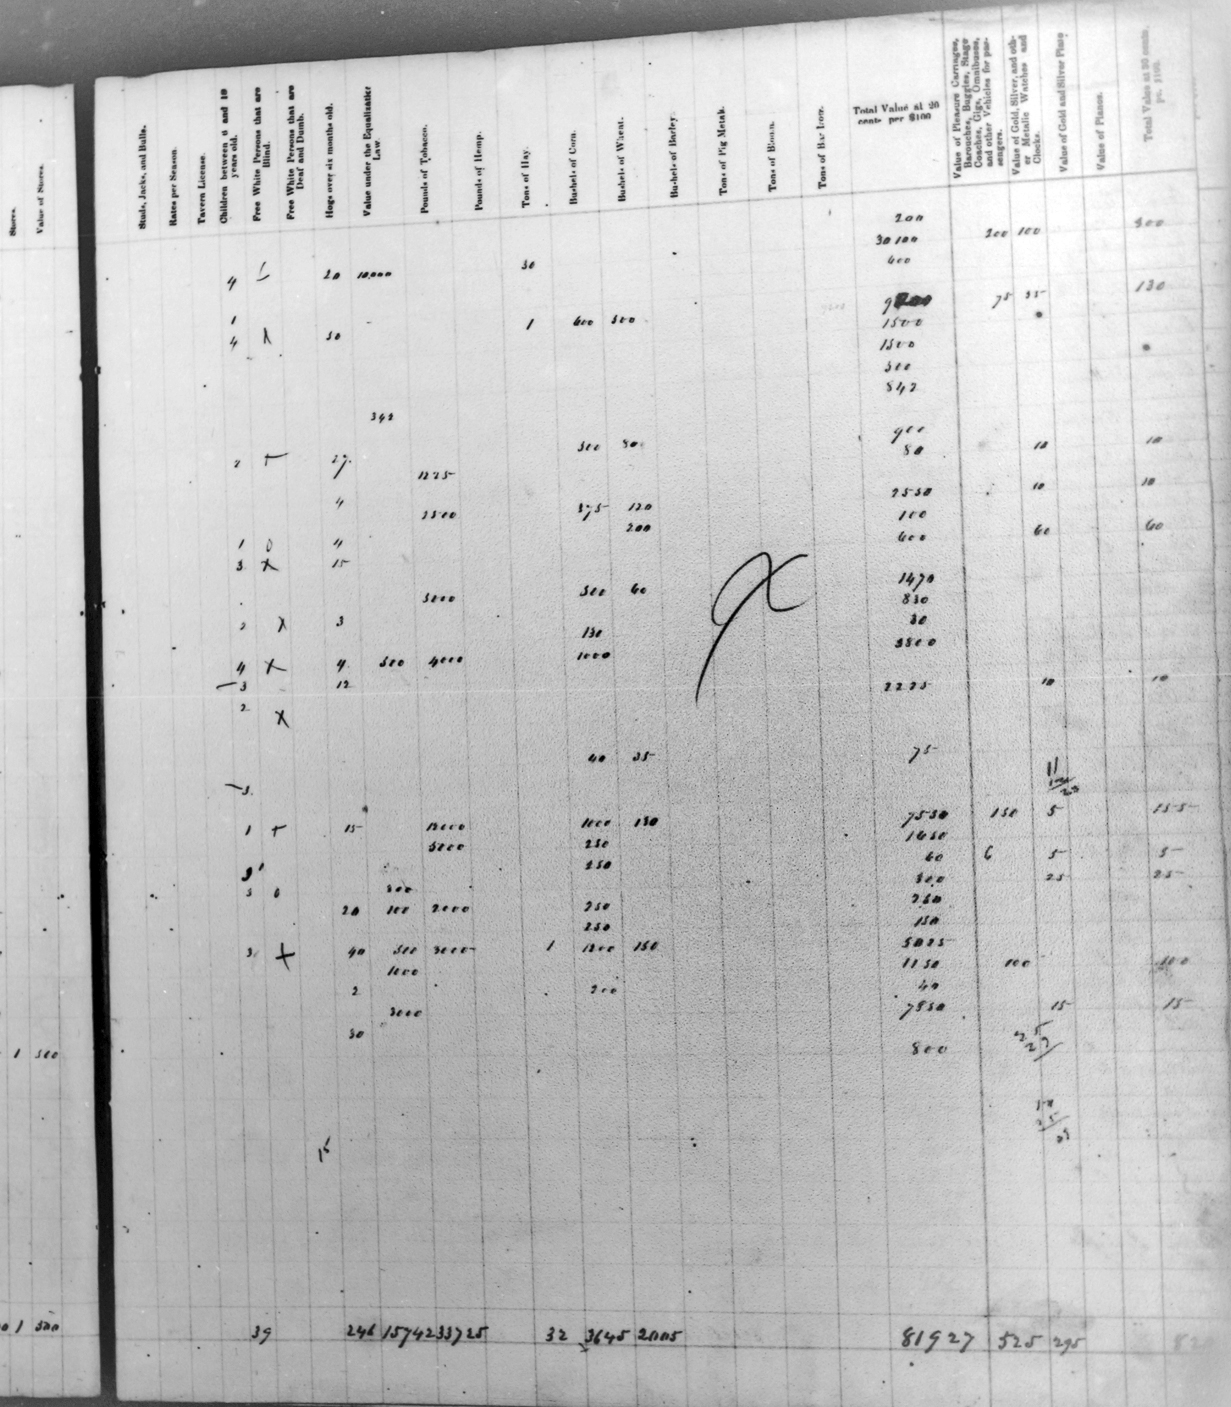 Stores.
Value of Stores.
Studs, Jacks, and Bulls.
Rates per Season.
Tavern License.
Children between 6 and 18 years old.
Free White Persons that are Blind.
Free White Persons that are Deaf and Dumb.
Hogs over six months old.
Value under the Equalization Law.
Pounds of Tobacco.
Pounds of Hemp.
Tons of Hay.
Bushels of Corn.
Bushels of Wheat.
Bushels of Barley.
Tons of Pig Metal.
Tons of Bloom.
Tons of Bar Iron.
Total Value at 20 cents per $100
Value of Pleasure Carriages, Barouches, Buggies, Stage Coaches, Gigs, Omnibusses, and other Vehicles for passengers.
Value of Gold, Silver, and other Metalic Watches and Clocks.
Value of Gold and Silver Plate
Value of Pianos.
Total Value at 30 cents, pr. $100.
200
30100 200 100 300
400
4 20 10,000 30
75 55 130
1 1 600 500 1500
4 X 50 1500
500
842
342
900
2 27 500 80 10 10
1225
4 2550 10 10
1500 375 120 100
200 400 60 60
1 0 4
3 X 15 1470
5000 500 60 830
2 X 3 130 30
3800
4 X 4 500 4000 1000
3 12 2225 10 10
2 X
40 35 75
3
1 15 12000 1000 150 7550 150 5 155
5000 250 1650
250 60 6 5 5
300 25 25
3 0 300 250
20 100 2000 250 150
250
3 X 40 500 3000 1 1200 150 5025
1000 1150 100 100
2 200 40
3000 7950 15 15
30
1 500 800 25
16
1 500 39 246 15742 33725 32 3645 2005 81927 525 295